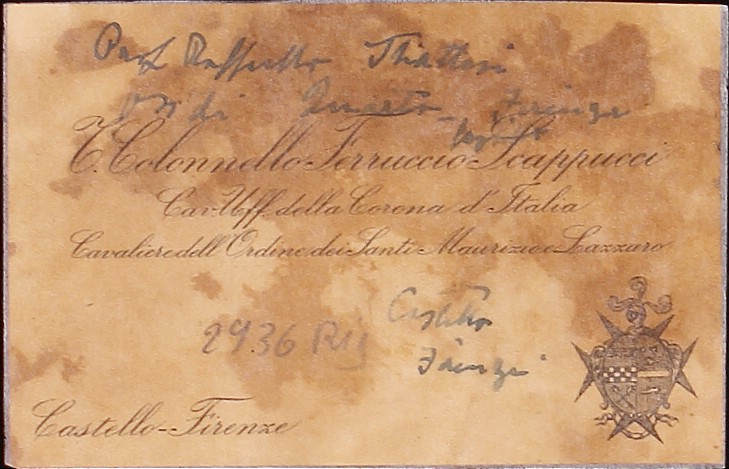 Prof Raffaello
di Quarto Firenze
T. Colonnello Ferruccio Scappucci
Cav. Uff. della Corona d'Italia
Cavaliere dell'Ordine dei Santi Maurizio e Lazzaro
Castello
2936
Firenze
Castello-Firenze